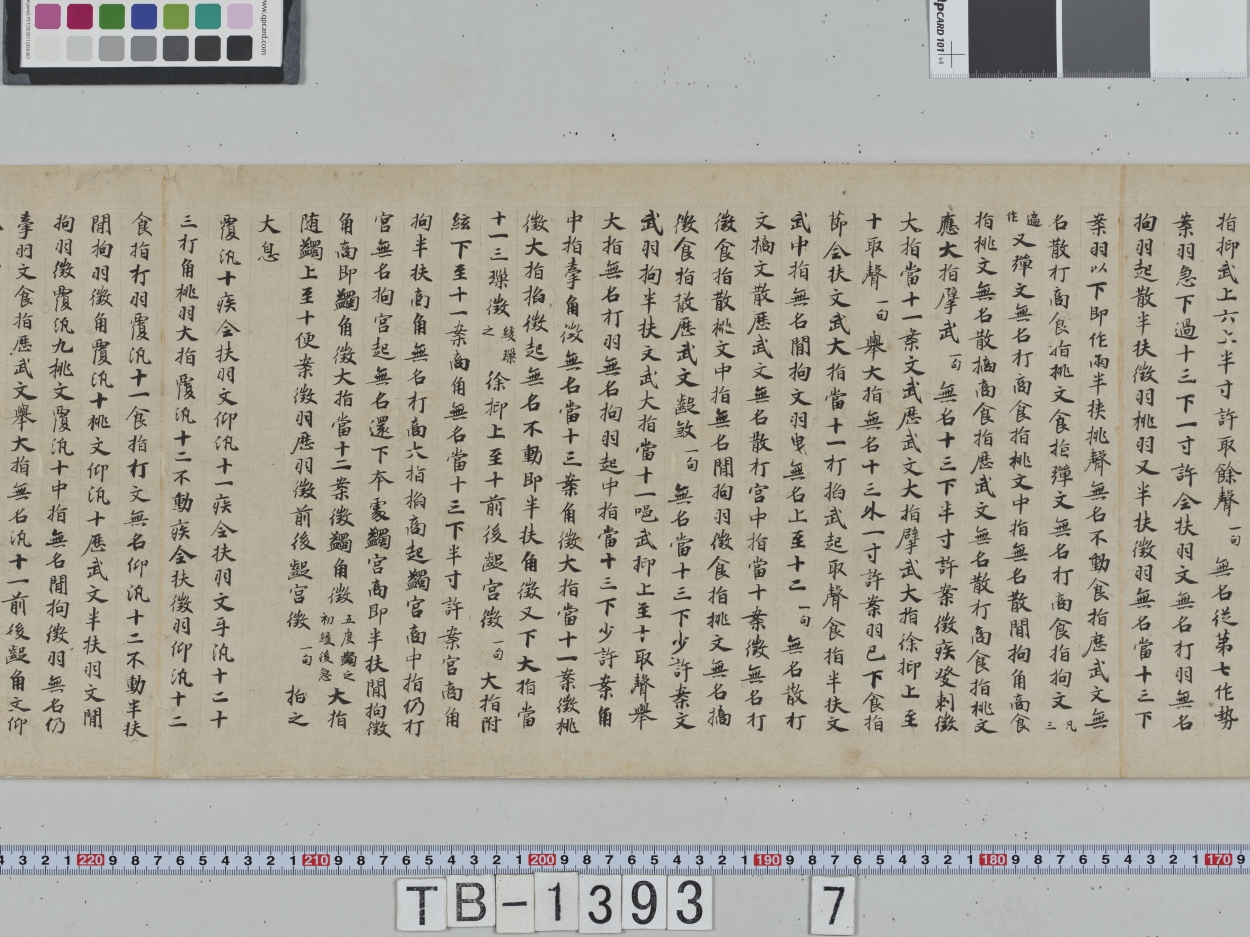 指抑武上六六半寸許取餘聲一句 無名從第七作勢
案羽急下過十三下一寸許全扶羽文無名打羽無名
拘羽起散半扶徵羽桃羽又半扶徵羽無名當十三下
案羽以下即作兩半扶挑聲無名不動食指歷武文無
名散打商食指桃文食指彈文無名打商食指拘文凡三
遍作又彈文無名打商食指桃文中指無名散間拘角商食
指桃文無名散摘商食指歷武文無名散打商食指桃文
應大指擘武一句 無名十三下半寸許案徵疾發刺徵
大指當十一案文武歷武文大指擘武大指徐抑上至
十取聲一句 舉大指無名十三外一寸許案羽已下食指
節全扶文武大指當十一打掐武起取聲食指半扶文
武中指無名間拘文羽曳無名上至十二一句 無名散打
文摘文散歷武文無名散打宮中指當十案徵無名打
徵食指散桃文中指無名間拘羽徵食指挑文無名摘
徵食指散歷武文齪敛一句 無名當十三下少許案文
武羽拘半扶文武大指當十一唈武抑上至十取聲舉
大指無名打羽無名拘羽起中指當十三下少許案角
中指牽角徵無名當十三案角徵大指當十一案徵桃
徵大指掐徵起無名不動即半扶角徵又下大指當
十一三㻎徵緩㻎之徐抑上至十前後齪宮徵一句 大指附
絃下至十一案商角無名當十三下半寸許案宮商角
拘半扶商角無名打商六指掐商起蠲宮商中指仍打
宮無名拘宮起無名還下本處蠲宮商即半扶間拘徵
角商即蠲角徵大指當十二案徵蠲角徵五度蠲之初緩後急大指
随蠲上至十便案徵羽應羽徵前後齪宮徵一句 掐之
大息
覆汎十疾全扶羽文仰汎十一疾全扶羽文乎汎十二十
三打角桃羽大指覆汎十二不動疾全扶徵羽仰汎十二
食指打羽覆汎十一食指打文無名仰汎十二不動半扶
間拘羽徵角覆汎十桃文仰汎十歷武文半扶羽文間
拘羽徵覆汎九桃文覆汎十中指無名間拘徵羽無名仍
牽羽文食指歷武文舉大指無名汎十一前後齪角文仰
www.qpcard.com
QPCARD 101 v4
TB-1393 7